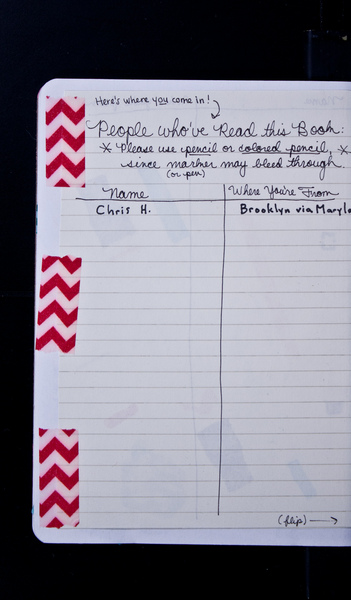 Here's where you come in!
People who've Read this Book:
* Please use pencil or colored pencil, *
since marker may bleed through.
(or pen)
Name Where You're From
Chris H. Brooklyn via Maryla
(flip) →